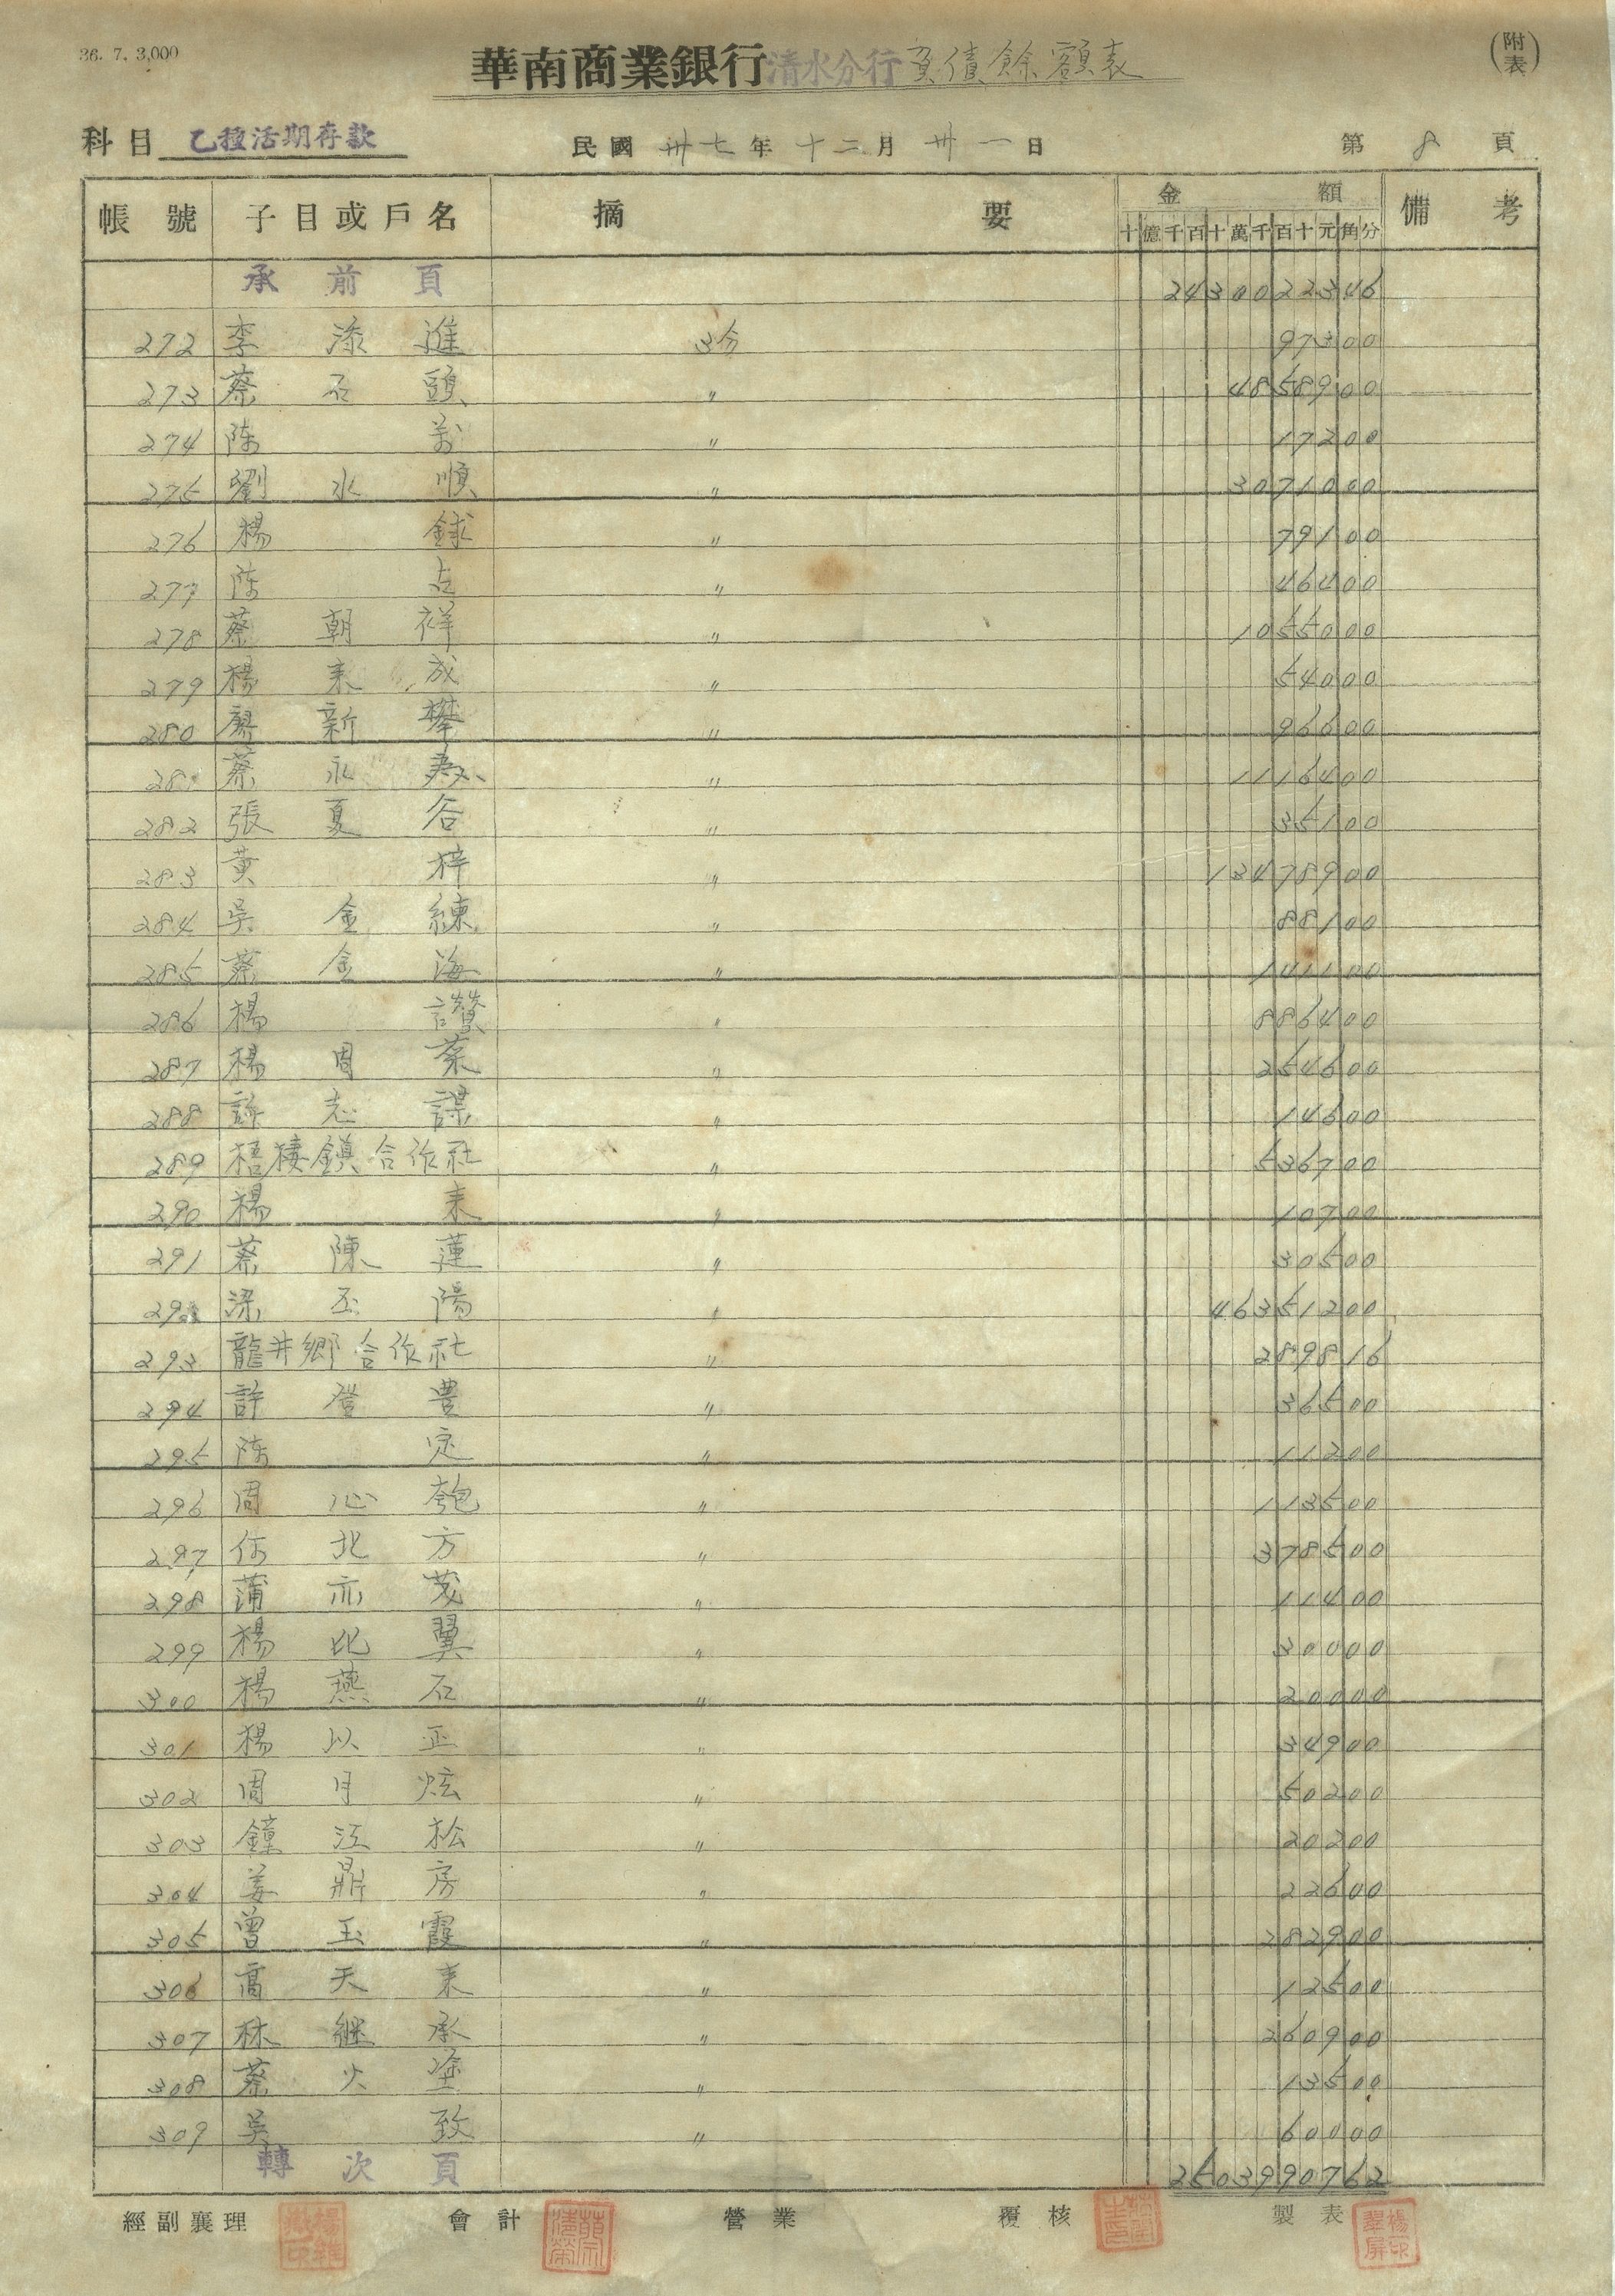 36. 7. 3,000
華南商業銀行清水分行負債餘額表
(附表)
科目 乙種活期存款 民國 卅七 年 十二 月 卅一 日 第 8 頁
帳號 子目或戶名 摘要 金額 備考
十億千百十萬千百十元角分
承前頁 24300223 46
272 李添進 3分 973 00
273 蔡石頭 〃 48589 00
274 陈萬 〃 172 00
275 劉水順 〃 30710 00
276 楊銶 〃 791 00
277 陈 〃 464 00
278 蔡朝祥 〃 10550 00
279 楊来成 〃 540 00
280 廖新攀 〃 966 00
281 蔡永 〃 11164 00
282 張夏谷 〃 351 00
283 黄梓 〃 134789 00
284 吳金練 〃 881 00
285 蔡金海 〃 1411 00
286 楊讚 〃 8864 00
287 楊周蔡 〃 2546 00
288 許志謀 〃 146 00
289 梧棲鎮合作社 〃 5367 00
290 楊来 〃 107 00
291 蔡陳蓮 〃 305 00
292 梁玉陽 〃 463512 00
293 龍井鄉合作社 〃 2898 16
294 許登豊 〃 365 00
295 陈定 〃 112 00
296 周心匏 〃 1135 00
297 何北方 〃 3785 00
298 蒲亦茂 〃 114 00
299 楊比翼 〃 300 00
300 楊燕石 〃 200 00
301 楊以正 〃 349 00
302 周月炫 〃 502 00
303 鐘江松 〃 202 00
304 姜鼎房 〃 226 00
305 曾玉霞 〃 2829 00
306 高天来 〃 125 00
307 林継承 〃 2609 00
308 蔡火塗 〃 135 00
309 吳致 〃 600 00
轉次頁 25039907 62
經副襄理 會計 營業 覆核 製表